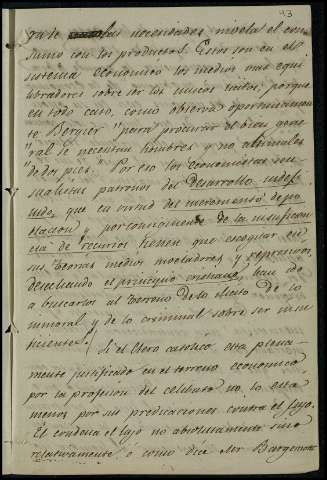 43
las necesidades nivelar el con-
sumo con los productos. Estos son en el
sistema económico los medios mas equi-
libradores sobre ser los unicos licitos; porque
en todo caso, como observa oportunamen-
te Bergier "para procurar el bien gene-
"ral se necesitan hombres y no animales
"de dos pies." Por eso los economistas sen-
sualistas patronos del desarrollo indefi-
nido, que en virtud del incremento de po-
blacion y por consiguiente de la insuficien-
cia de recursos tienen que escogitar en
sus teorias medios moderadores y represivos,
desechando el principio cristiano, han ido
a buscarlos al terreno de lo ilicito de lo
inmoral y de lo criminal sobre ser insu-
ficientes.
Si el Clero catolico esta plena-
mente justificado en el terreno economico
por la profesion del celibato no lo esta
menos por sus predicaciones contra el lujo.
El condena el lujo no absolutamente sino
relativamente, o como dice Mr